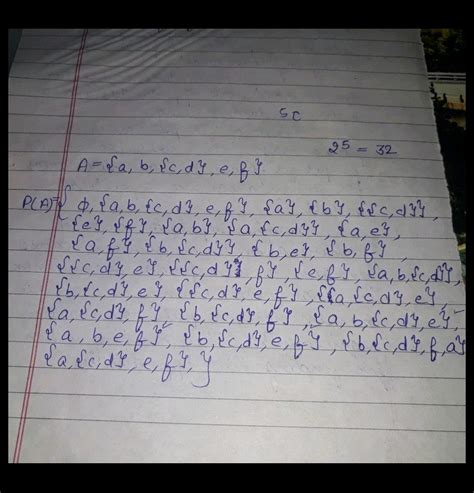 5C
2⁵ = 32
A = {a, b, {c, d}, e, f}
P(A) = { Φ, {a, b, {c, d}, e, f}, {a}, {b}, {{c, d}},
{e}, {f}, {a, b}, {a, {c, d}}, {a, e},
{a, f}, {b, {c, d}}, {b, e}, {b, f},
{{c, d}, e}, {{c, d}, f}, {e, f}, {a, b, {c, d}},
{b, {c, d}, e}, {{c, d}, e, f}, {a, {c, d}, e},
{a, {c, d}, f}, {b, {c, d}, f}, {a, b, {c, d}, e},
{a, b, e, f}, {b, {c, d}, e, f}, {b, {c, d}, f, a}
{a, {c, d}, e, f}, }